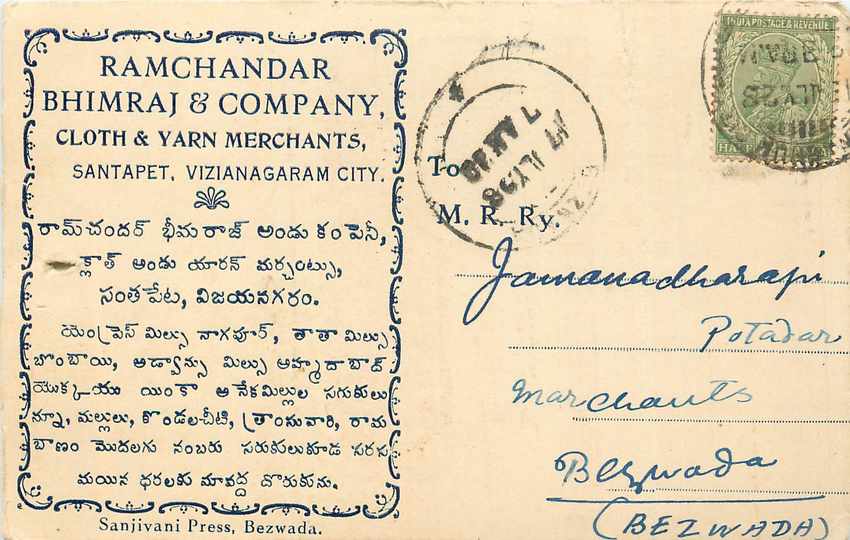 RAMCHANDAR
BHIMRAJ & COMPANY,
CLOTH & YARN MERCHANTS,
SANTAPET, VIZIANAGARAM CITY.
రామ్‌చందర్ భీమరాజ్ అండు కంపెనీ,
క్లాత్ అండు యారన్ మర్చంట్సు,
సంతపేట, విజయనగరం.
యెంప్రెస్ మిల్సు నాగపూర్, తాతా మిల్సు
బొంబాయి, అడ్వాన్సు మిల్సు అహ్మదాబాద్
యొక్కయు యింకా అనేకమిల్లుల సరుకులు
న్నూ, మల్లులు, కొండలచీటి, ఫ్రాంసువారి, రామ
బాణం మొదలగు నంబరు సరుకులుకూడ సరస
మయిన ధరలకు మావద్ద దొరుకును.
Sanjivani Press, Bezwada.
INDIA POSTAGE & REVENUE
To
M. R. Ry.
Jamanadharapi
Potadar
Marchants
Bezwada
(BEZWADA)